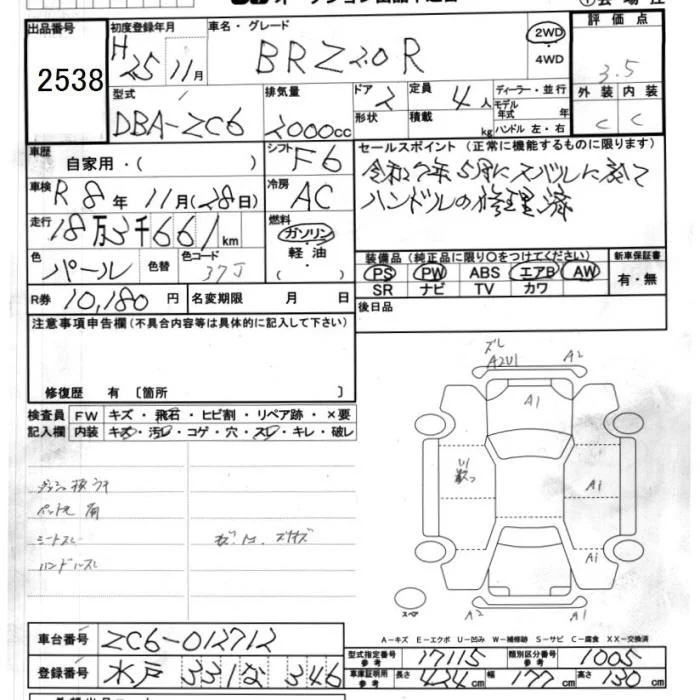 出品番号 2538
初度登録年月 H25 11月
車名・グレード BRZ 2.0 R
2WD
・4WD
評価点 3.5
外装 内装
C C
型式 DBA-ZC6
排気量 2000cc
ドア 2
形状
定員 4人
積載 kg
ディーラー・並行
モデル年式 年
ハンドル 左・右
車歴 自家用・( )
シフト F6
車検 R8年11月(28日)
冷房 AC
走行 18万3千661km
燃料 ガソリン・軽油・( )
色 パール 色替
色コード 37J
R券 10,180円 名変期限 月 日
セールスポイント (正常に機能するものに限ります)
令和7年5月にスバルにて
ハンドルの修理済
装備品 (純正品に限り○をつけてください)
PS PW ABS エアB AW
SR ナビ TV カワ
新車保証書
有・無
後日品
注意事項申告欄 (不具合内容等は具体的に記入して下さい)
修復歴 有 〔箇所 〕
検査員記入欄
FW キズ・飛石・ヒビ割・リペア跡・×要
内装 キズ・汚レ・コゲ・穴・スレ・キレ・破レ
シートスレ
ハンドルスレ
ズレ
A2U1 A2
A1
U1
A1
A1
A2 A1
スペア
A-キズ E-エクボ U-凹み W-補修跡 S-サビ C-腐食 XX-交換済
車台番号 ZC6-012712
登録番号 水戸 331 な 346
型式指定番号 参考 17115
類別区分番号 参考 1005
車庫証明用 参考 長さ 424cm 幅 177cm 高さ 130cm